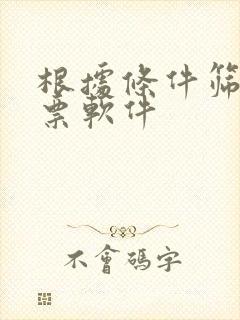 根據條件篩
票軟件
不會碼字